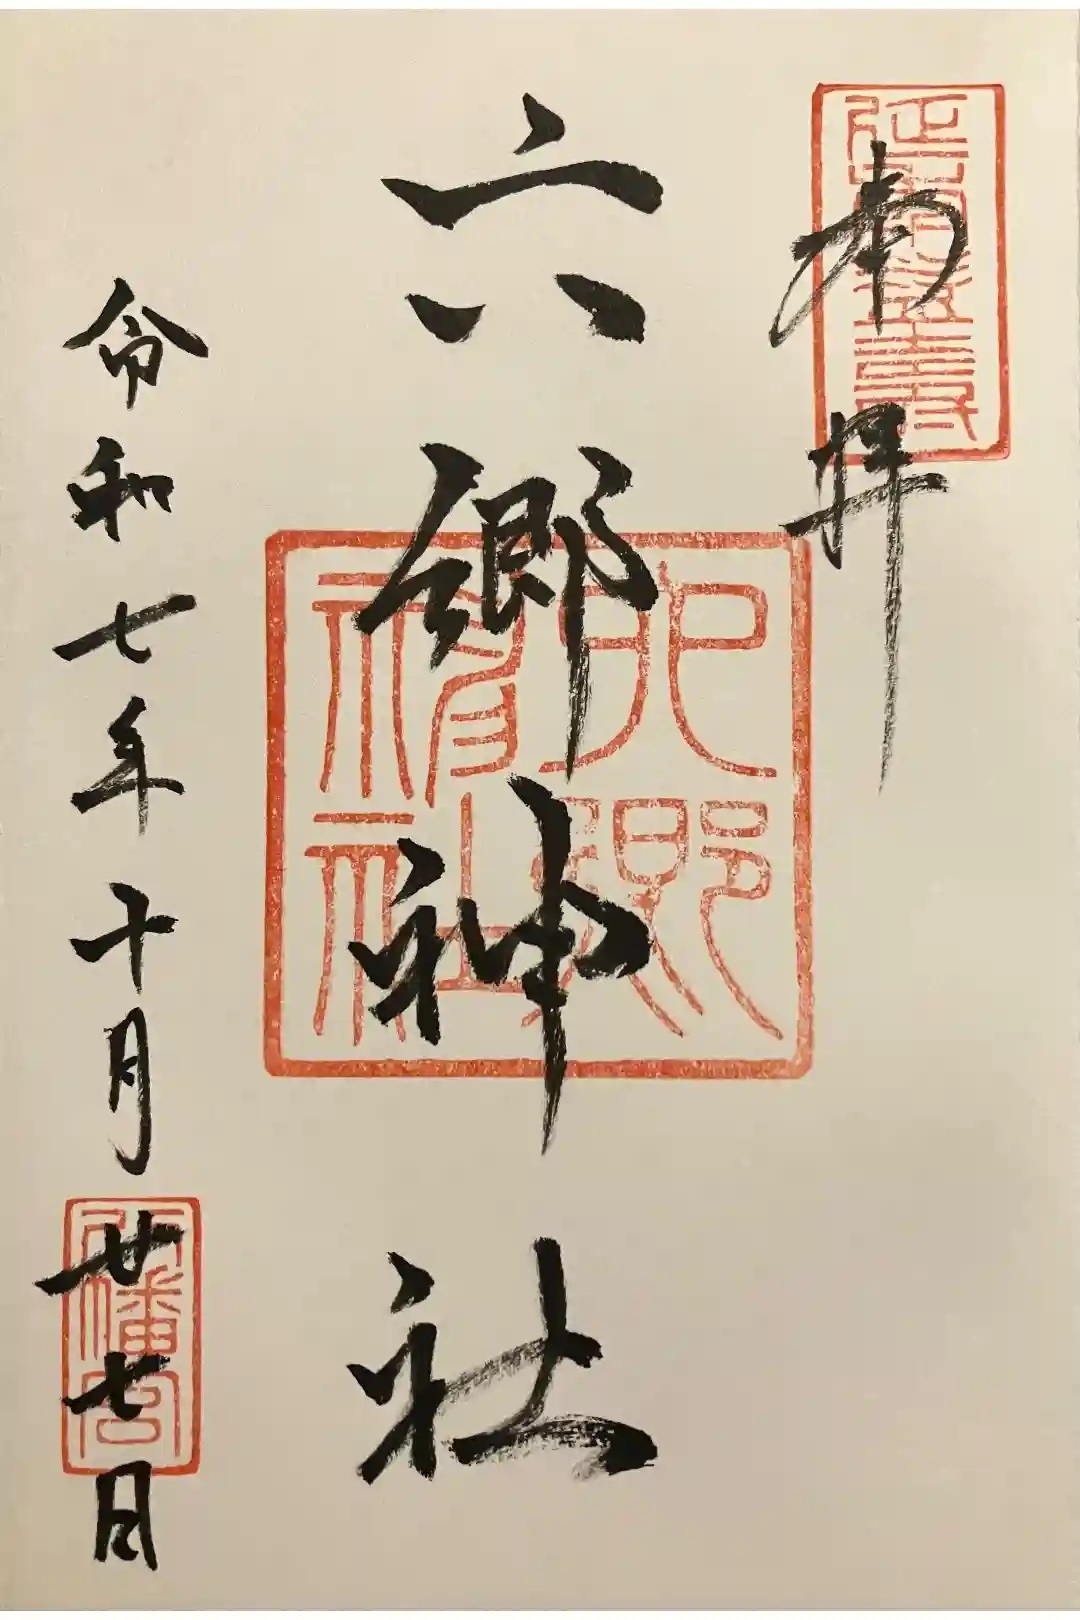 奉拝
六郷神社
六郷神社
令和七年十月廿七日
八幡宮